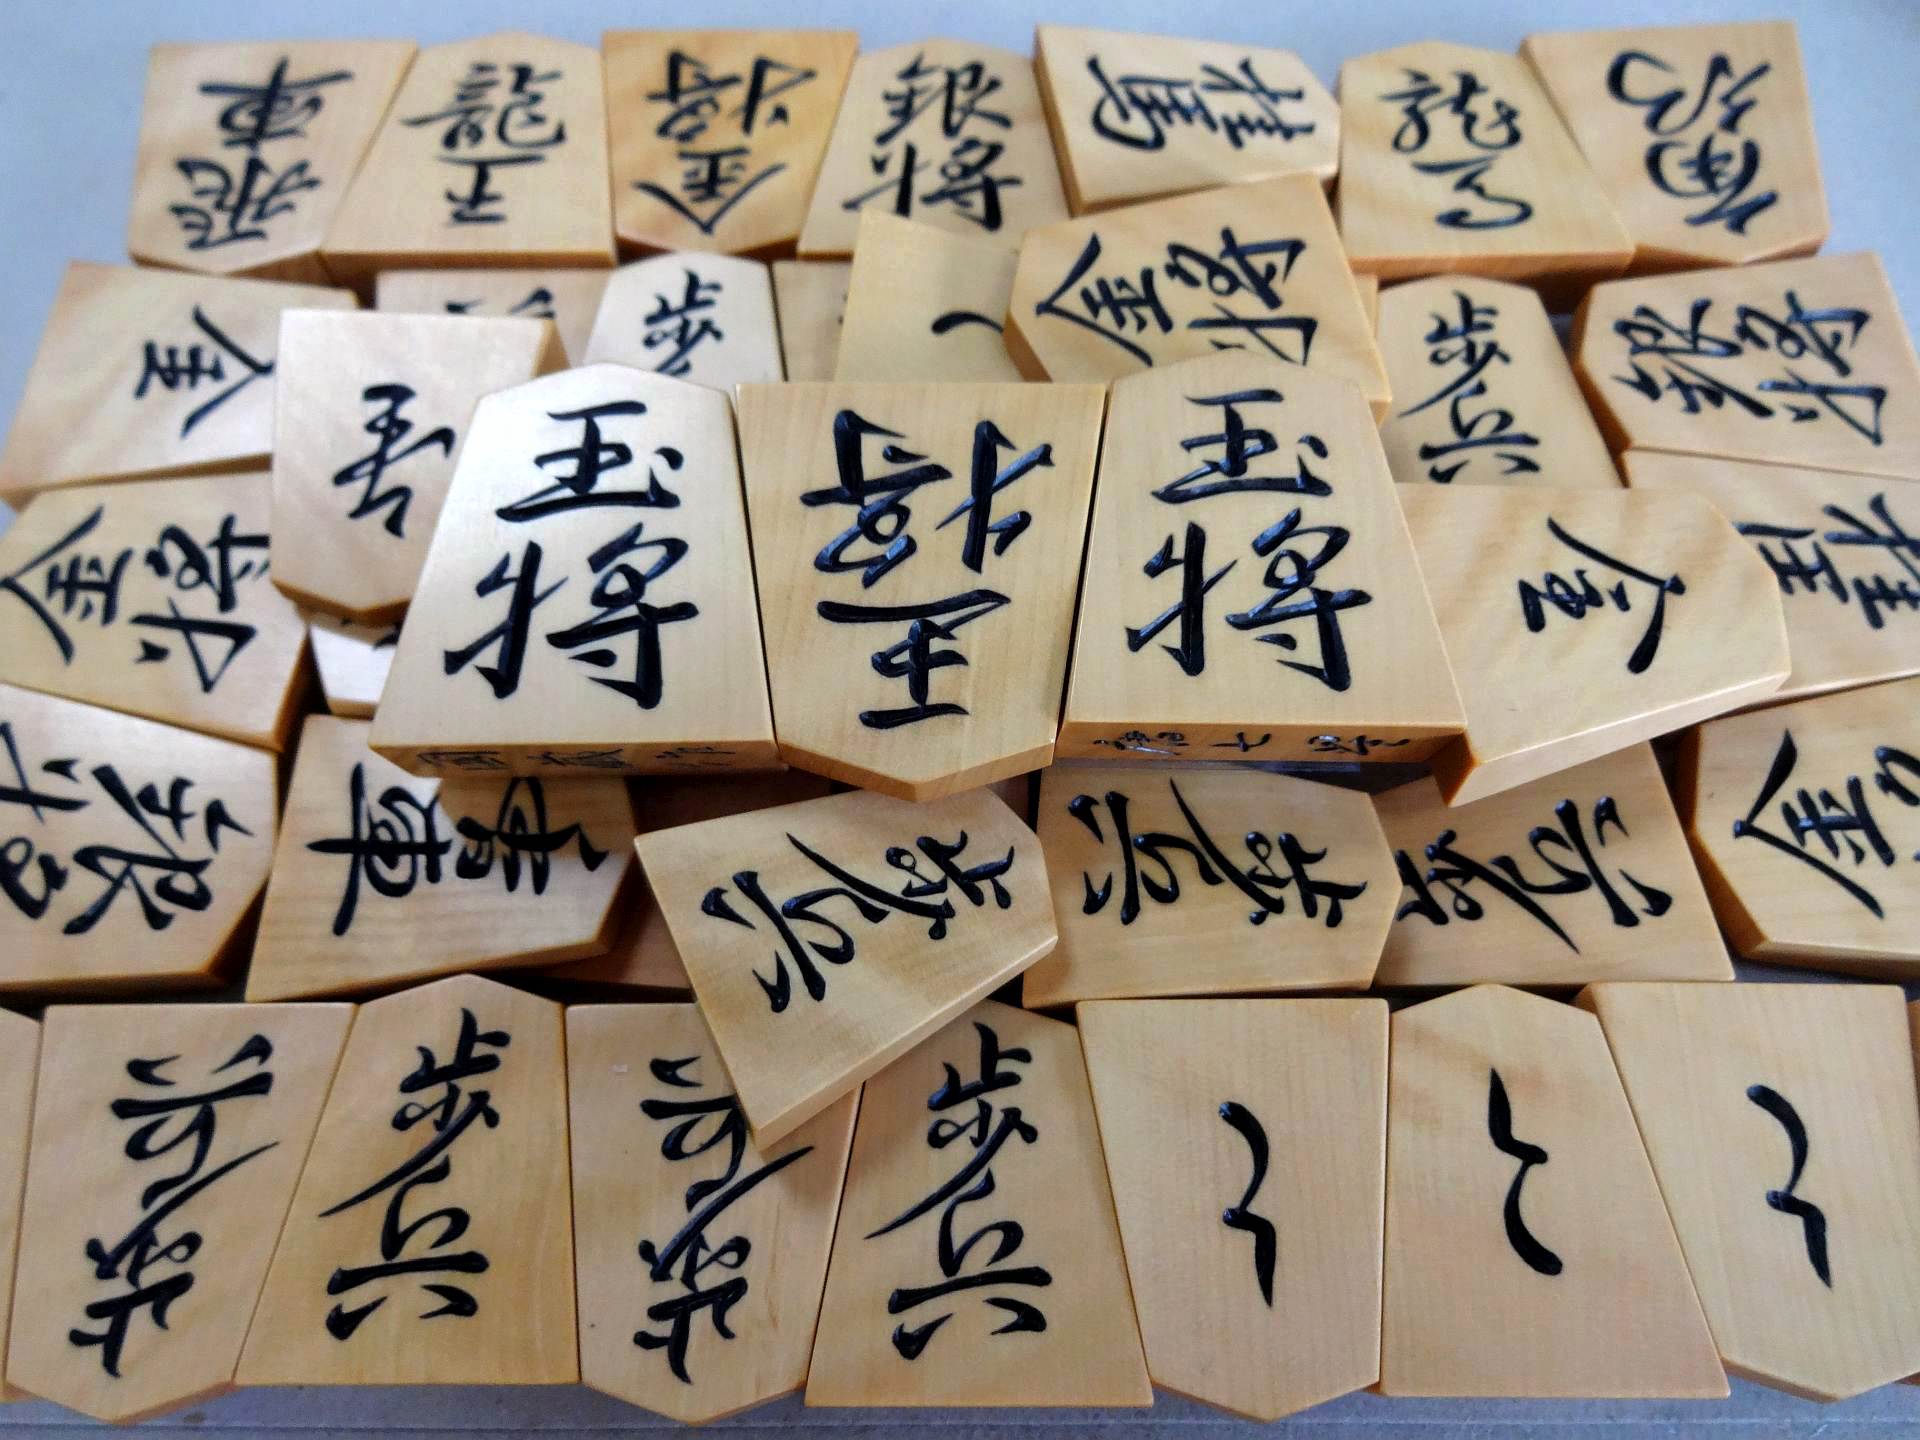 飛車
龍王
金将
銀将
桂馬
龍馬
角行
金
歩
金将
歩兵
銀将
金将
玉将
王将
玉将
金
桂
銀将
香車
歩兵
歩兵
歩兵
金
歩兵
歩兵
歩兵
歩兵
と
と
と